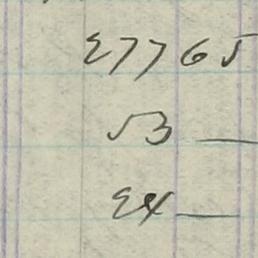 27765
53 —
24 —